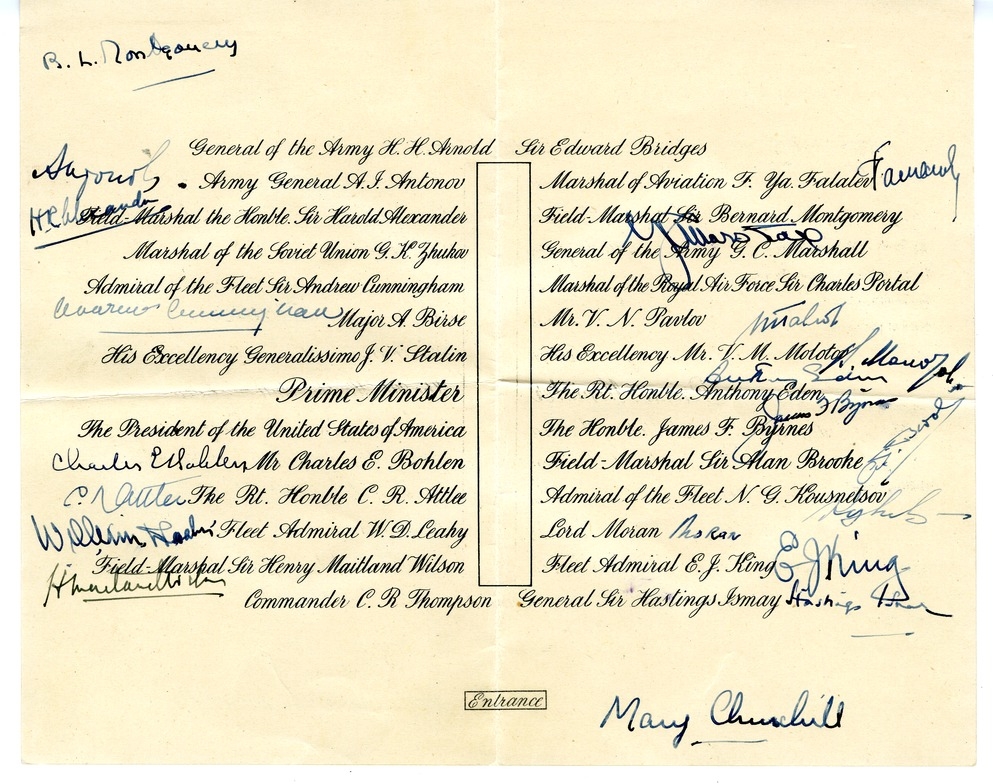 B. L. Montgomery
General of the Army H. H. Arnold Sir Edward Bridges
Army General A. I. Antonov Marshal of Aviation F. Ya. Falalev
Field-Marshal the Honble. Sir Harold Alexander Field-Marshal Sir Bernard Montgomery
Marshal of the Soviet Union G. K. Zhukov General of the Army G. C. Marshall
Admiral of the Fleet Sir Andrew Cunningham Marshal of the Royal Air Force Sir Charles Portal
Major A. Birse Mr. V. N. Pavlov
His Excellency Generalissimo J. V. Stalin His Excellency Mr. V. M. Molotov
Anthony Eden
Prime Minister The Rt. Honble. Anthony Eden
James F Byrnes
The President of the United States of America The Honble. James F. Byrnes
Charles E Bohlen Mr Charles E. Bohlen Field-Marshal Sir Alan Brooke
C R Attlee The Rt. Honble C. R. Attlee Admiral of the Fleet N. G. Kousnetsov
William Leahy Fleet Admiral W. D. Leahy Lord Moran Moran
Field-Marshal Sir Henry Maitland Wilson Fleet Admiral E. J. King E J King
H Maitland Wilson
Commander C. R Thompson General Sir Hastings Ismay Hastings Ismay
Entrance
Mary Churchill